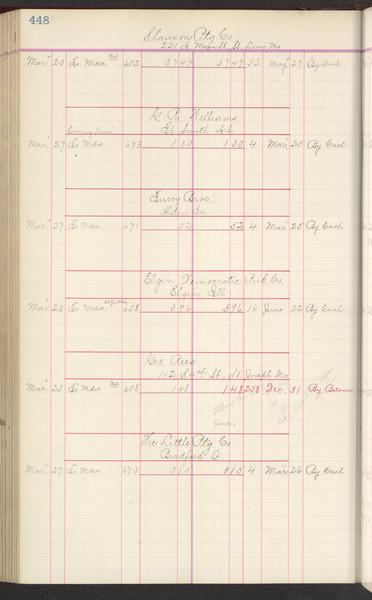 448
Slawson Ptg Co
221 N. Main St, St. Louis Mo
Mar 20 To Mdse 602 3747 3747 52 May 27 By Cash
G. R. Williams
Ft Smith Ark
Mar 27 To Mdse 673 100 100 4 Mar 25 By Cash
Furry Bros.
Mar 27 To Mdse 671 52 52 4 Mar 25 By Cash
Elgin Democratic Pub Co
Elgin Ill
Mar 23 To Mdse 658 396 396 16 June 22 By Cash
Geo. Rees
112 S 4th St. St Joseph Mo
Mar 23 To Mdse 658 148 148 238 Dec 31 By Balance
The Little Ptg Co
Bradford O.
Mar 27 To Mdse 673 315 315 4 Mar 26 By Cash